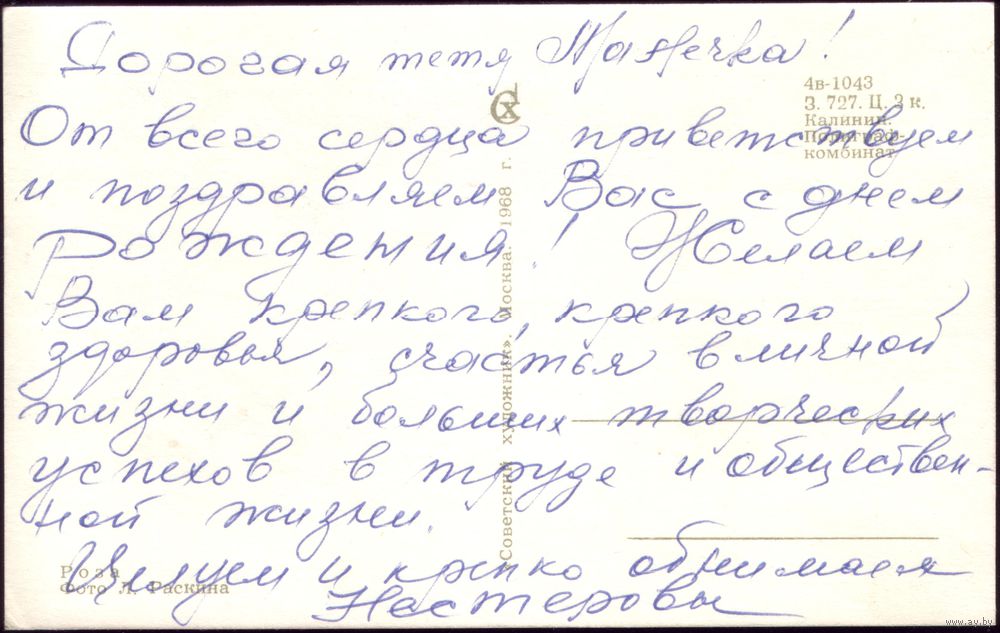 Дорогая тетя Манечка!
От всего сердца приветствуем
и поздравляем Вас с днем
Рождения! Желаем
Вам крепкого, крепкого
здоровья, счастья в личной
жизни и больших творческих
успехов в труде и обществен-
ной жизни.
Целуем и крепко обнимаем
Нестеровы
4в-1043
З. 727. Ц. 3 к.
Калинин.
Полиграф-
комбинат
«Советский художник». Москва. 1968 г.
Роза
Фото Л. Раскина
www.ay.by